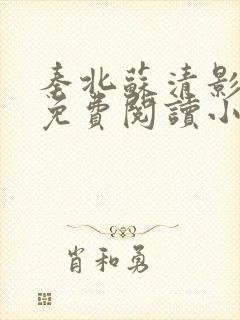 秦北蘇清影
免費閱讀小
肖和勇